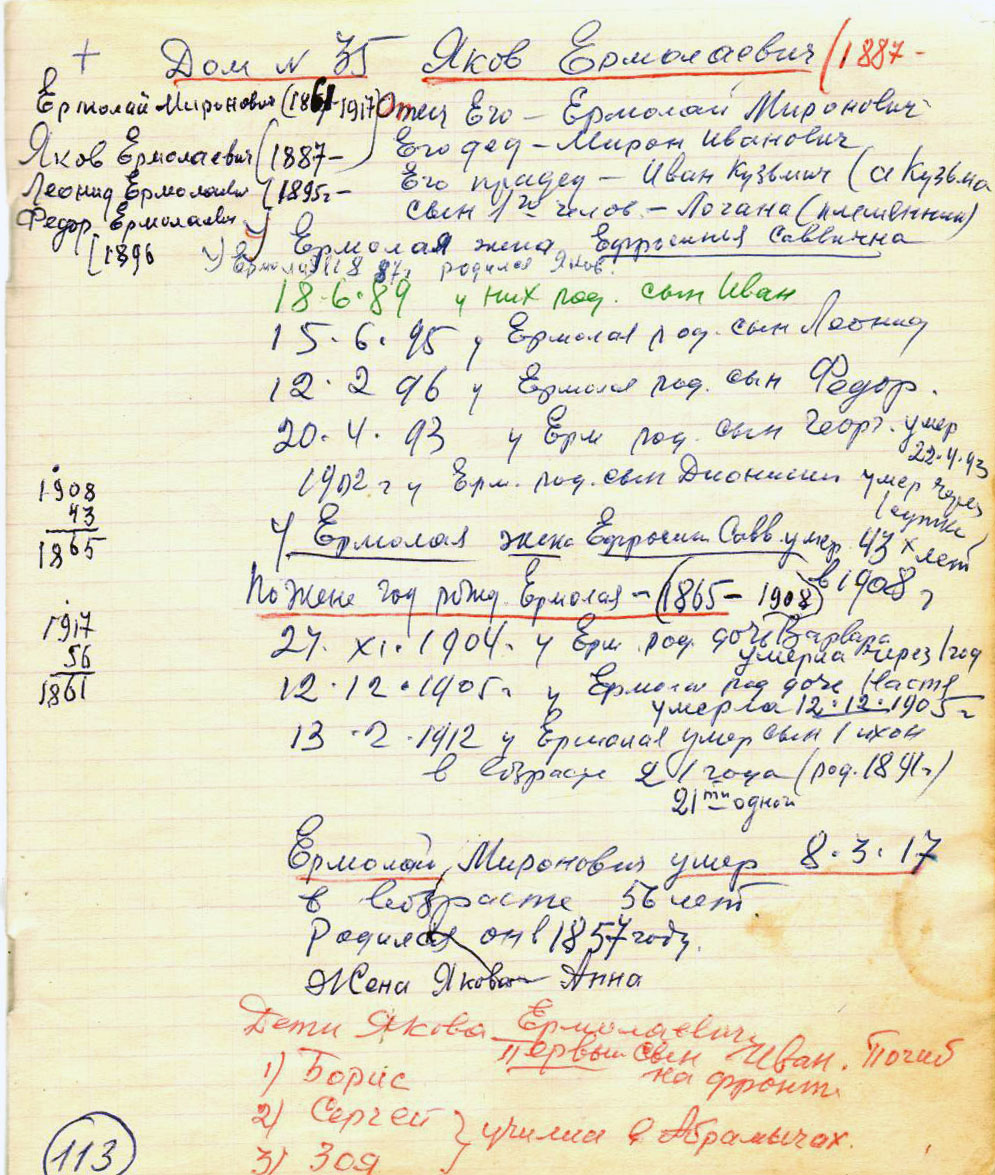 + Дом № 35 Яков Ермолаевич (1887 -
Ермолай Миронович (1861-1917)
Яков Ермолаевич (1887 -
Леонид Ермолаевич (1895г -
Федор Ермолаевич
[1896
Отец Его - Ермолай Миронович
Его дед - Мирон Иванович
Его прадед - Иван Кузьмич (а Кузьма
сын 1го челов. - Логана (племянник)
Ермолая жена Ефросиния Саввична
Ермолая 1887г родился Яков.
18.6.89 у них род. сын Иван
15.6.95 у Ермолая род. сын Леонид
12.2 96 у Ермолая род. сын Федор.
20.4.93 у Ерм род. сын Георг. умер
22.4.93
1902 г у Ерм. род. сын Дионисий умер через
1 сутки
У Ермолая жена Ефросин Савв. умер. 43х лет
в 1908 г
По жене год рожд. Ермолая - (1865 - 1908)
1908
43
1865
1917
56
1861
27. XI. 1904. у Ерм. род. дочь Варвара
умерла через 1 год
12.12.1905г у Ермолая род дочь Настя
умерла 12.12.1905г
13.2.1912 у Ермолая умер сын Тихон
в возрасте 21 года (род. 1891г)
21ти одной
Ермолай Миронович умер 8.3.17
в возрасте 56 лет
Родился он в 1857 году.
Жена Якова Анна
Дети Якова Ермолаевич
Первый сын Иван. Погиб
на фронте
1) Борис
2) Сергей
3) Зоя
} училиа в Абрамычах.
113